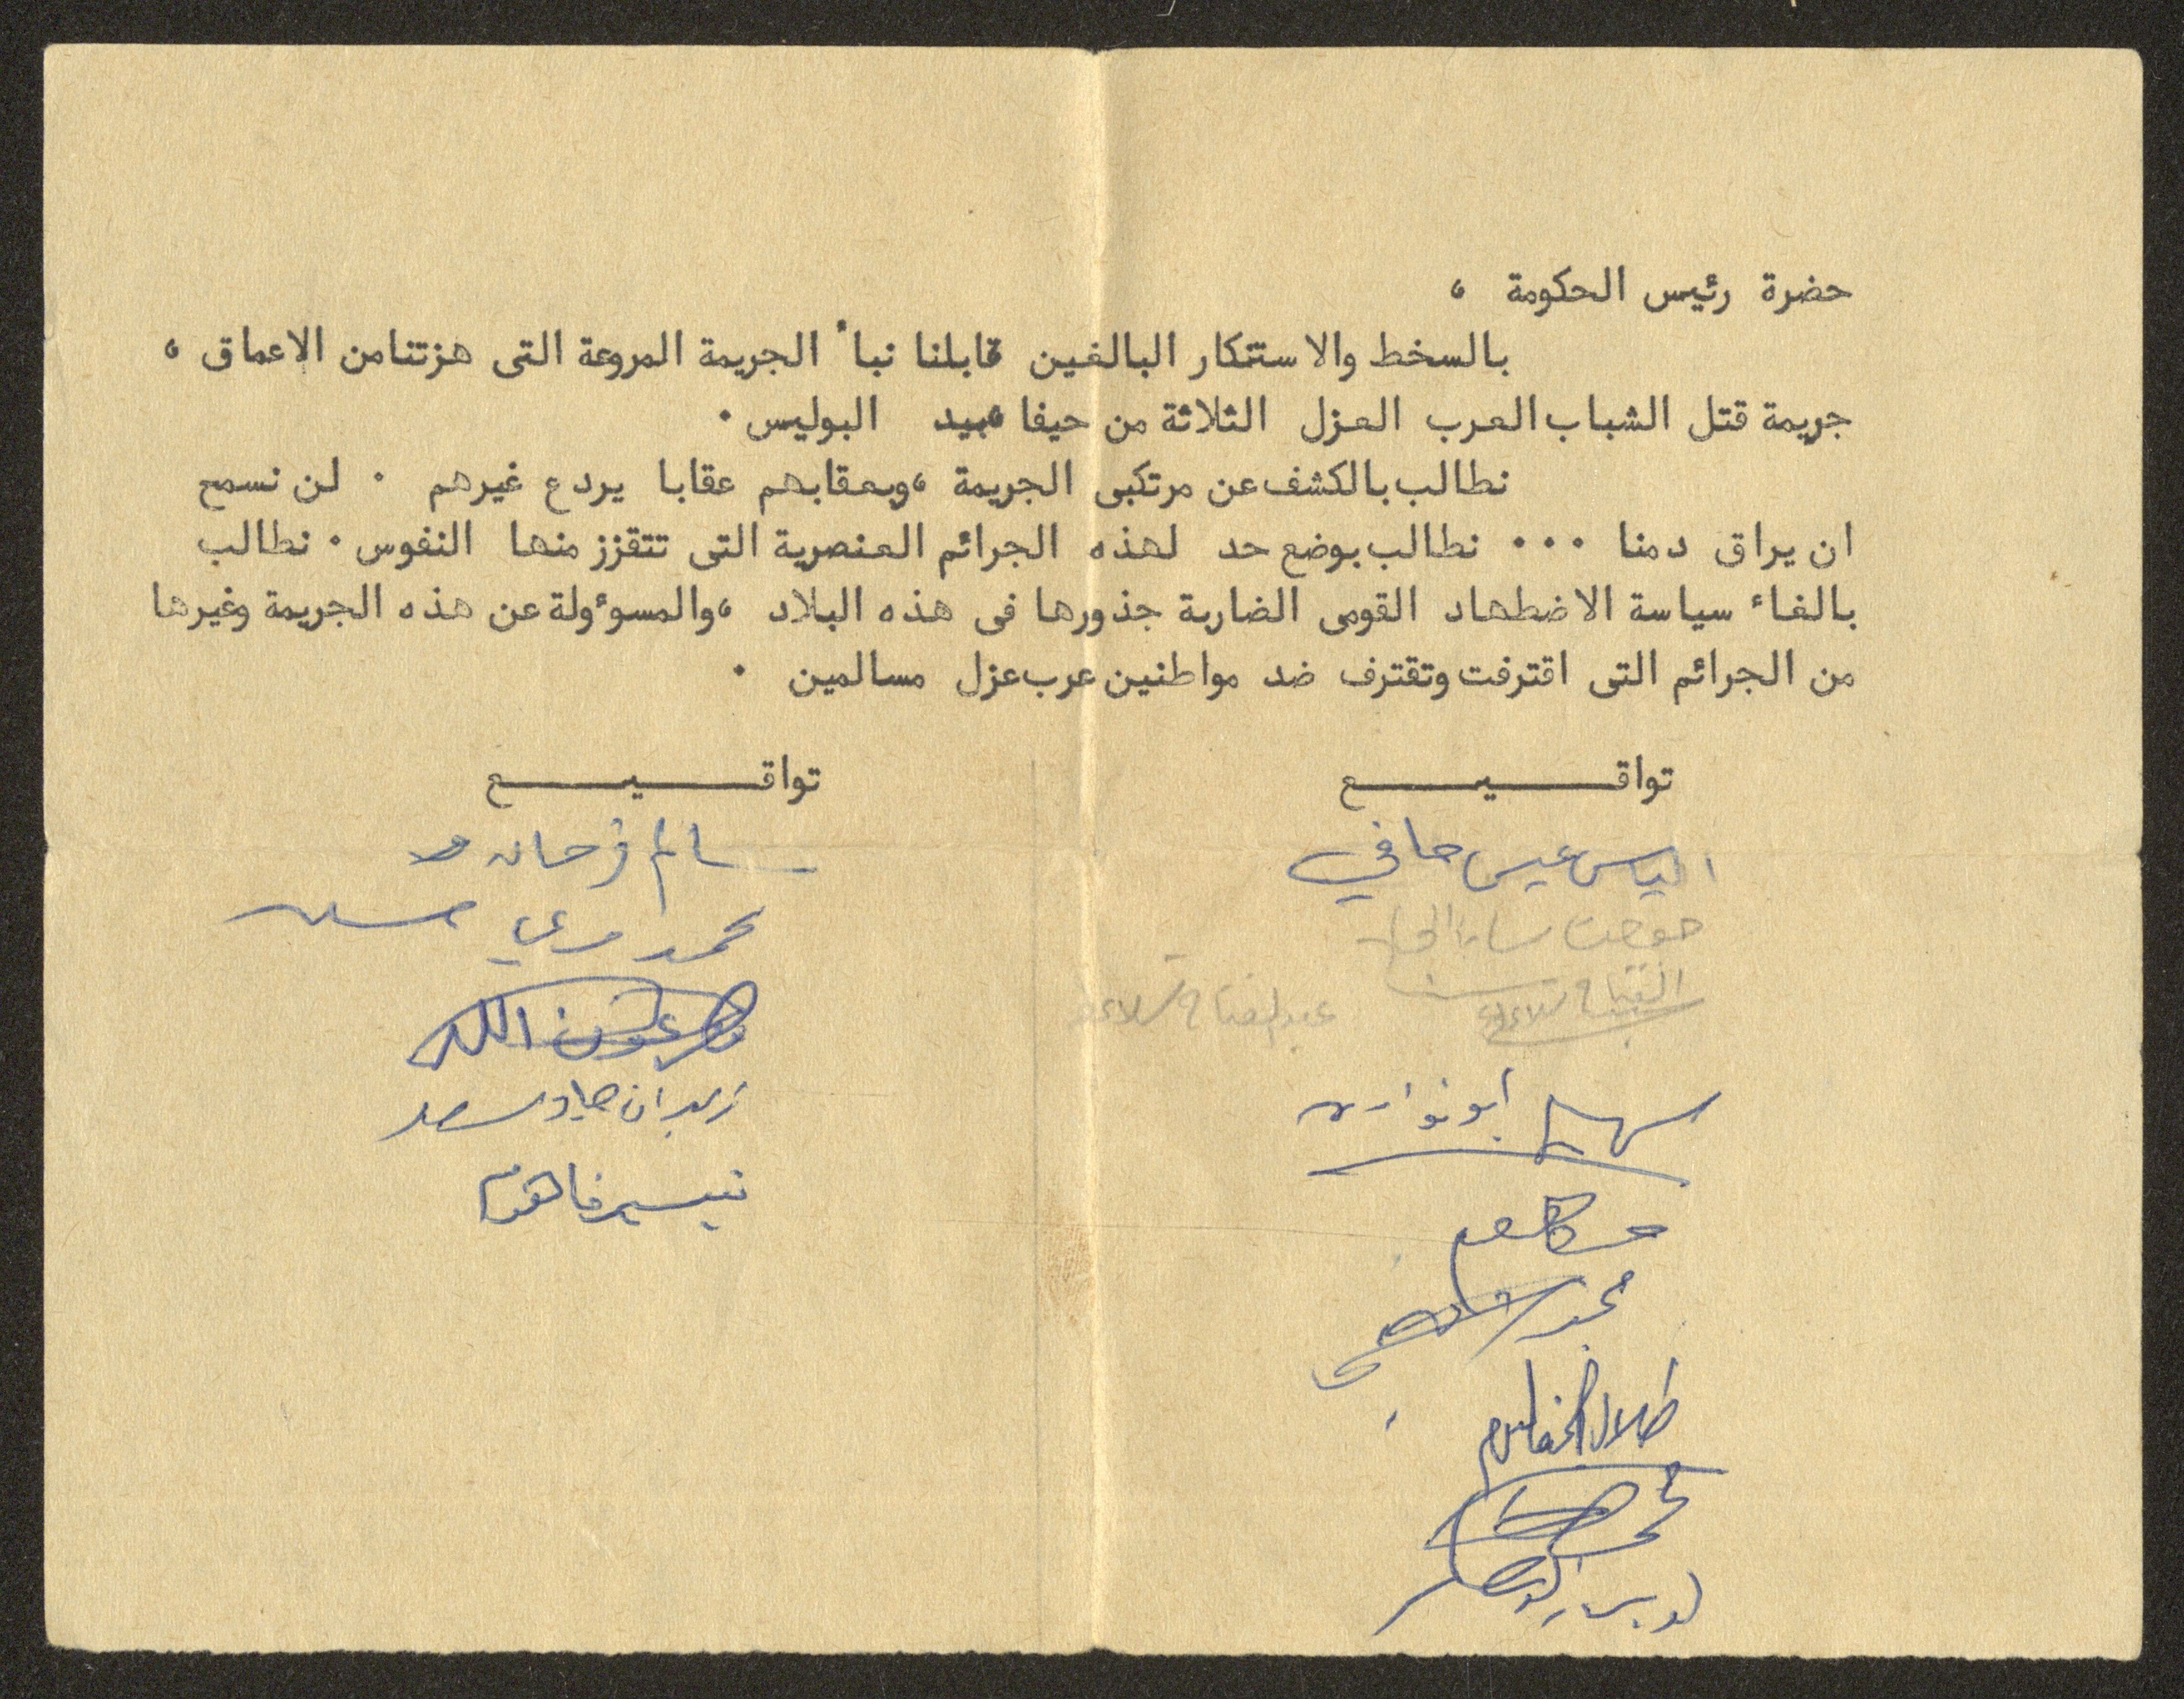 حضرة رئيس الحكومة ،
بالسخط والاستنكار البالغين قابلنا نبأ الجريمة المروعة التى هزتنا من الاعماق ،
جريمة قتل الشباب العرب العزل الثلاثة من حيفا بيد البوليس .
نطالب بالكشف عن مرتكبى الجريمة ،وبعقابهم عقابا يردع غيرهم . لن نسمح
ان يراق دمنا ... نطالب بوضع حد لهذه الجرائم العنصرية التى تتقزز منها النفوس . نطالب
بالغاء سياسة الاضطهاد القومى الضاربة جذورها فى هذه البلاد ،والمسوءولة عن هذه الجريمة وغيرها
من الجرائم التى اقترفت وتقترف ضد مواطنين عرب عزل مسالمين .
تواقيع
الياس عيسى صافي
سهيل ابو نواره
محمد
طلال
محمد
تواقيع
سالم فرحان
محمد مرعي حسن
عون الله
زيدان سعد
تيسير فاهوم